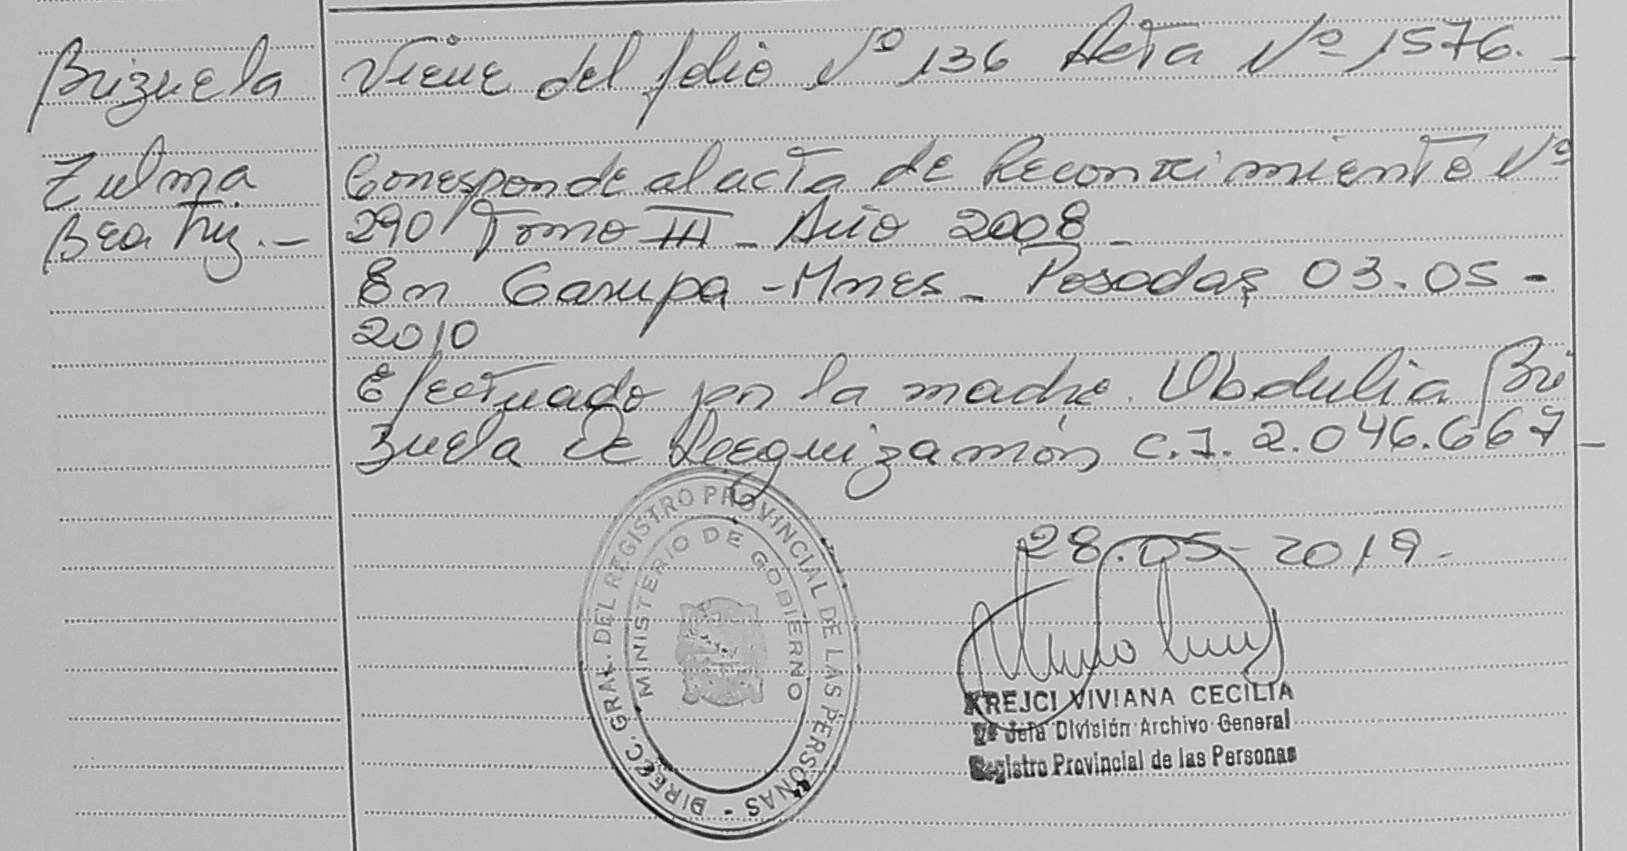 Brizuela
Zulma
Beatriz.-
Viene del folio Nº 136 Acta Nº 1576.-
Corresponde al acta de Reconocimiento Nº
290 Tomo III - Año 2008 -
En Garupa - Mnes - Posadas 03.05-
2010
Efectuado por la madre. Obdulia Bri
zuela de Leguizamón C.I. 2.046.667-
28.05-2019-
DIRECC. GRAL. DEL REGISTRO PROVINCIAL DE LAS PERSONAS -
MINISTERIO DE GOBIERNO
KREJCI VIVIANA CECILIA
2º Jefa División Archivo General
Registro Provincial de las Personas